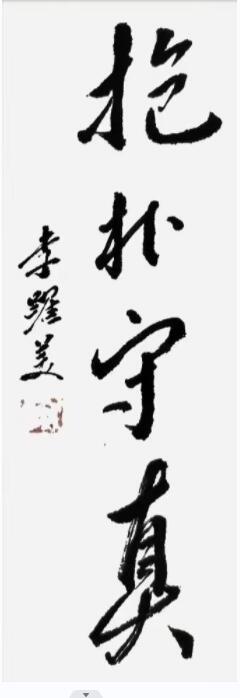 抱朴守真
李跃美